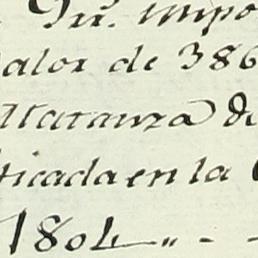 impo
alor de 386
Matanza de
ticada en la
1804 " - -